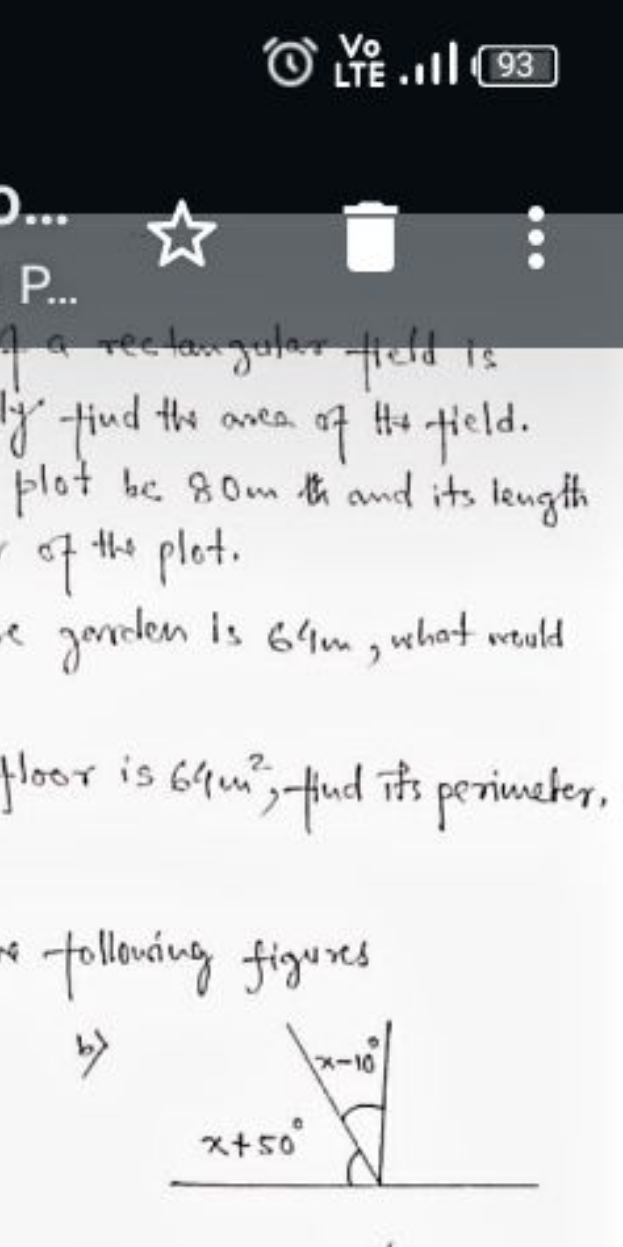 Vo
LTE 93
...
P...
a rectangular field is
ly find the area of the field.
plot be 80m th and its length
of the plot.
e garden is 64m, what would
floor is 64m², find its perimeter,
following figures
b)
x-10°
x+50°